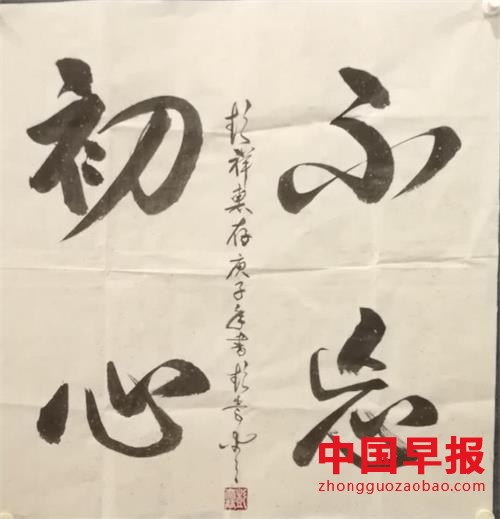 不忘
初心
彭祥惠存庚子年書彭
中国早报
zhongguozaobao.com